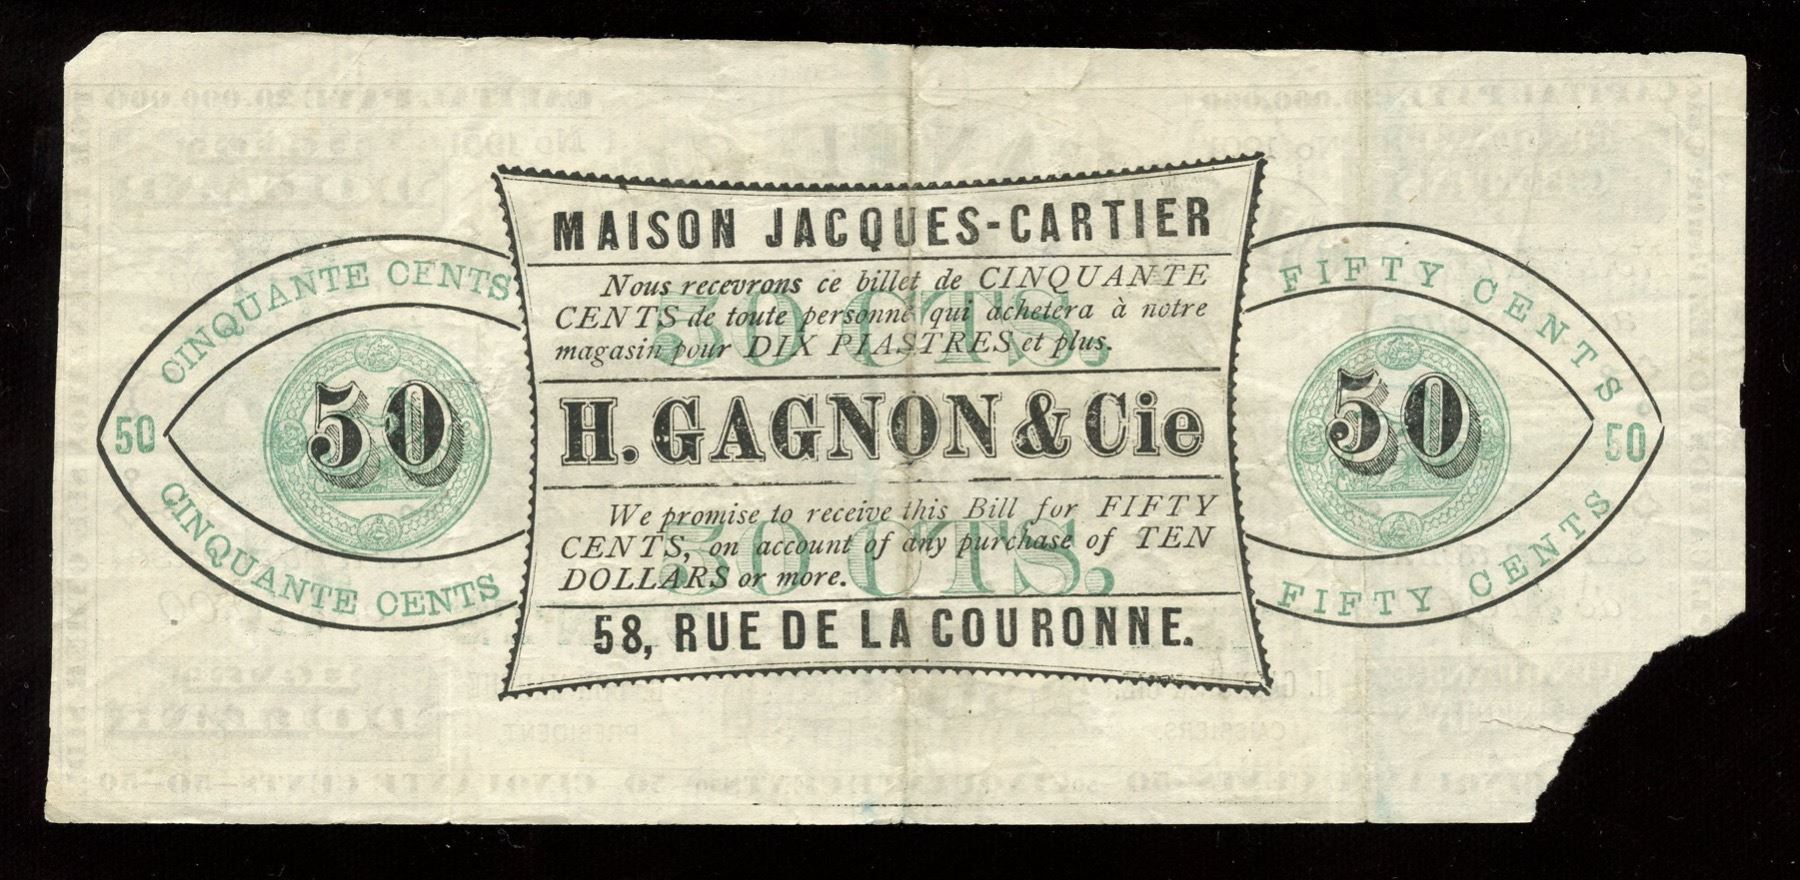 MAISON JACQUES-CARTIER
Nous recevrons ce billet de CINQUANTE
CENTS de toute personne qui achetera à notre
magasin pour DIX PIASTRES et plus.
50 CTS.
H. GAGNON & Cie
We promise to receive this Bill for FIFTY
CENTS, on account of any purchase of TEN
DOLLARS or more.
50 CTS.
58, RUE DE LA COURONNE.
CINQUANTE CENTS
50
50
CINQUANTE CENTS
FIFTY CENTS
50
50
FIFTY CENTS